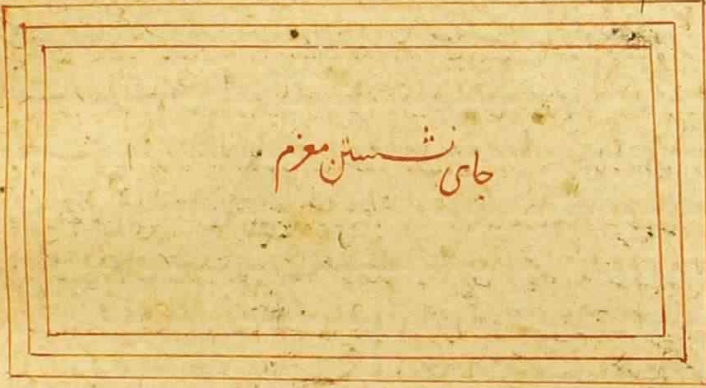 جای نشستن معزم